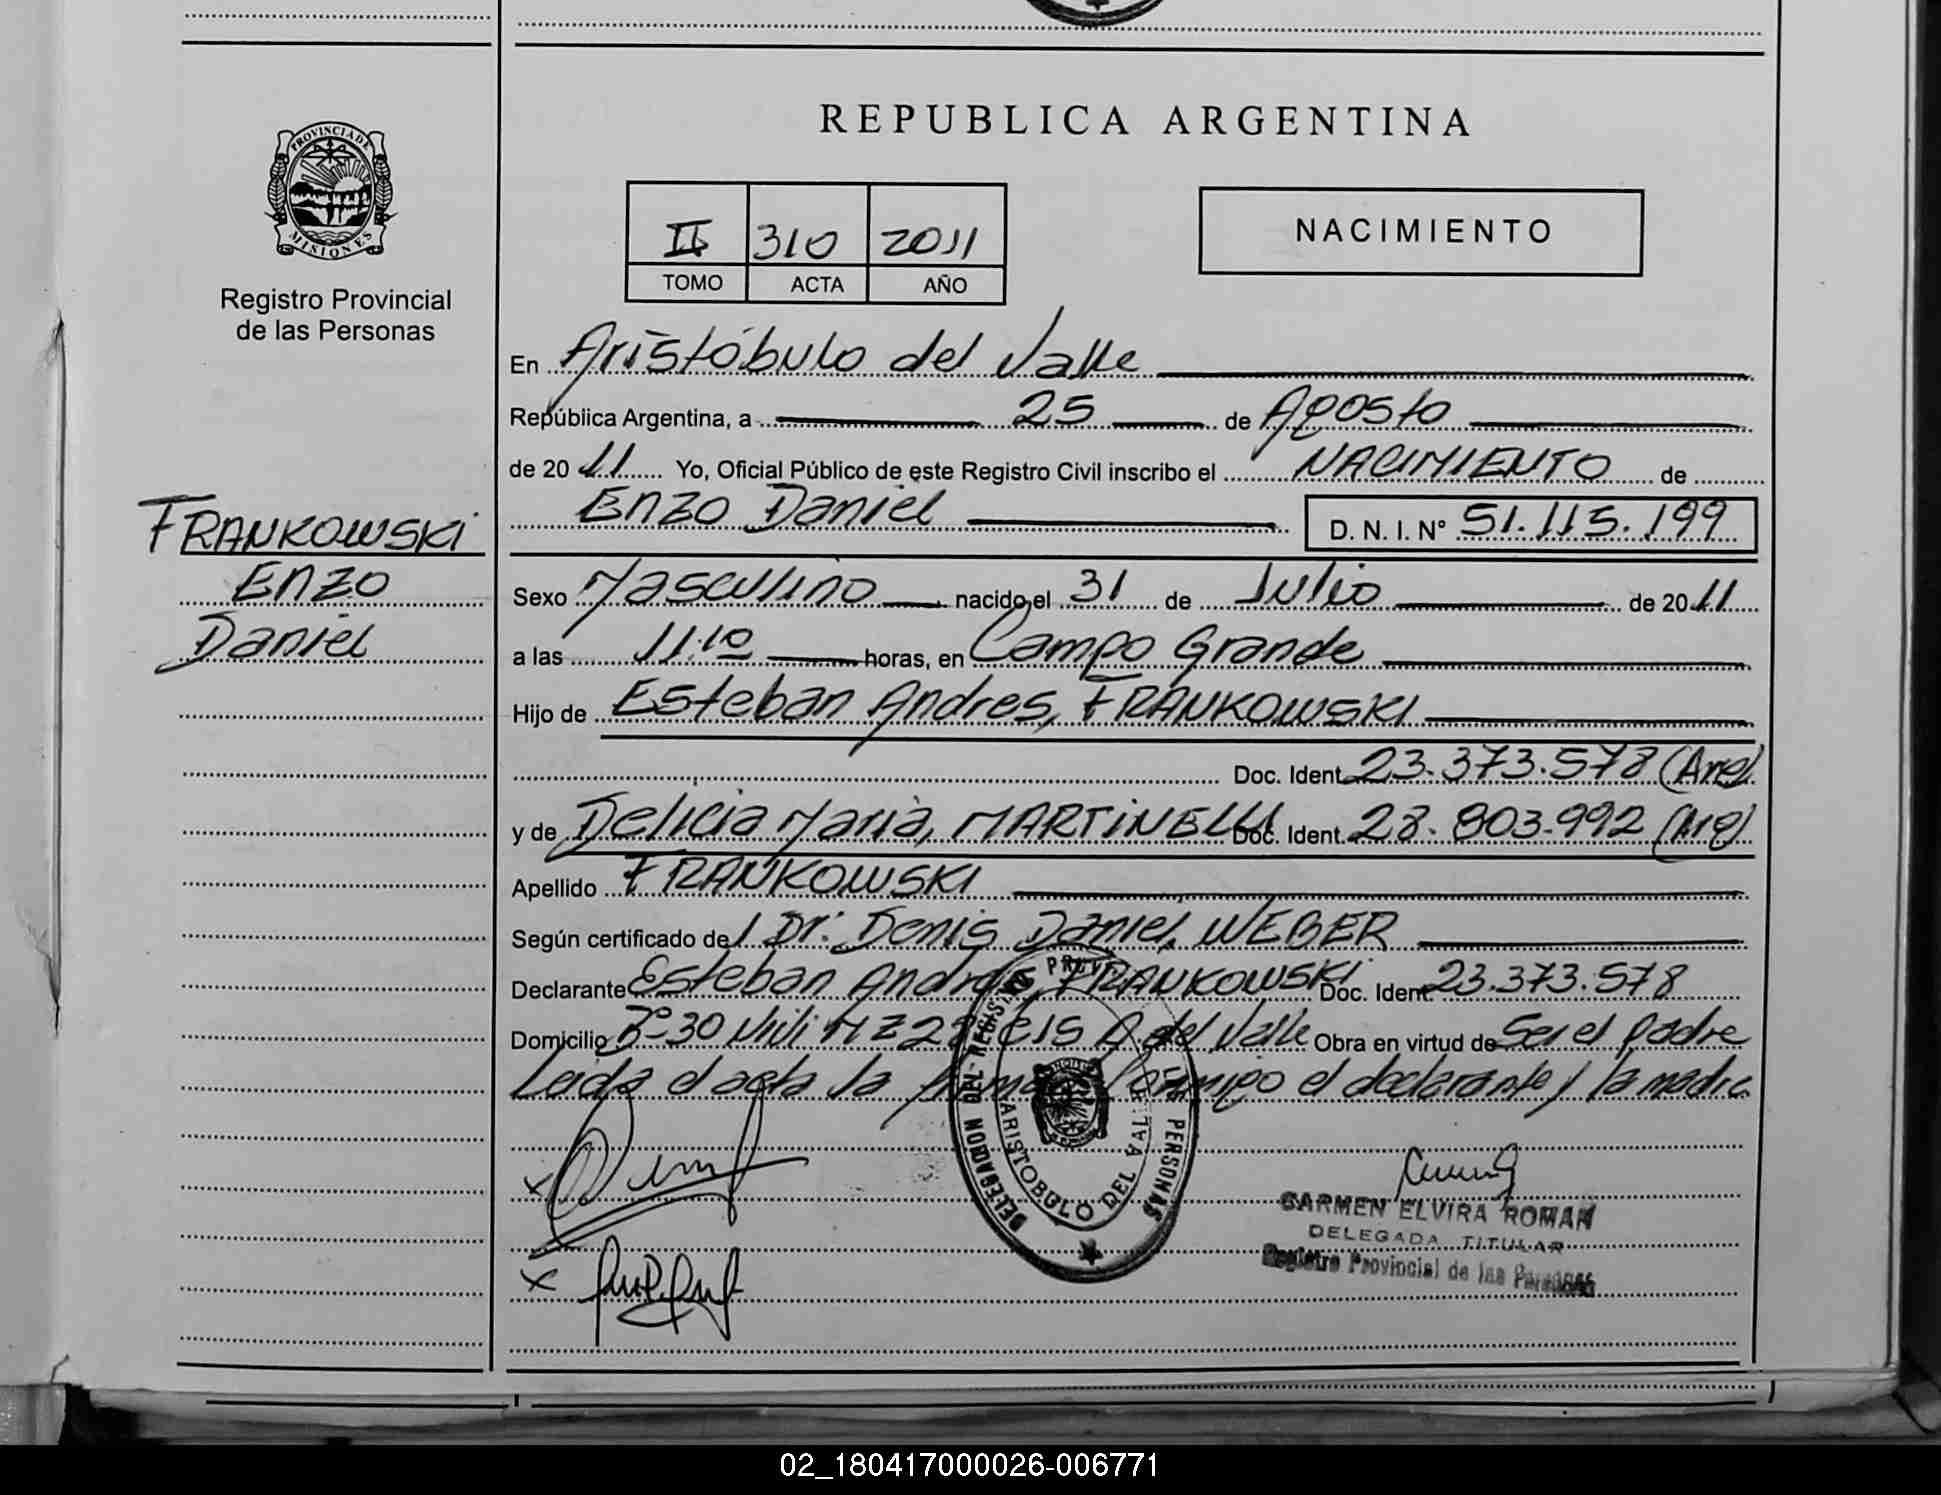 PROVINCIA DE MISIONES
Registro Provincial
de las Personas
FRANKOWSKI
ENZO
Daniel
REPUBLICA ARGENTINA
II 310 2011
TOMO ACTA AÑO
NACIMIENTO
En Aristóbulo del Valle
República Argentina, a 25 de Agosto
de 20 11 Yo, Oficial Público de este Registro Civil inscribo el NACIMIENTO de
ENZO Daniel D. N. I. N° 51.115.199
Sexo Masculino nacido el 31 de Julio de 20 11
a las 11:10 horas, en Campo Grande
Hijo de Esteban Andres, FRANKOWSKI
Doc. Ident. 23.373.578 (Arg)
y de Delicia Maria, MARTINELLI Doc. Ident. 28.803.992 (Arg)
Apellido FRANKOWSKI
Según certificado del Dr. Denis Daniel, WEBER
Declarante Esteban Andres FRANKOWSKI Doc. Ident. 23.373.578
Domicilio Bº 30 Vivi MZ 22 C15 A. del Valle Obra en virtud de Ser el padre
Leida el acta la firma Conmigo el declarante y la madre
DELEGACION DEL REGISTRO PROV. LAS PERSONAS
ARISTOBULO DEL VALLE
CARMEN ELVIRA ROMAN
DELEGADA TITULAR
Registro Provincial de las Personas
02_180417000026-006771